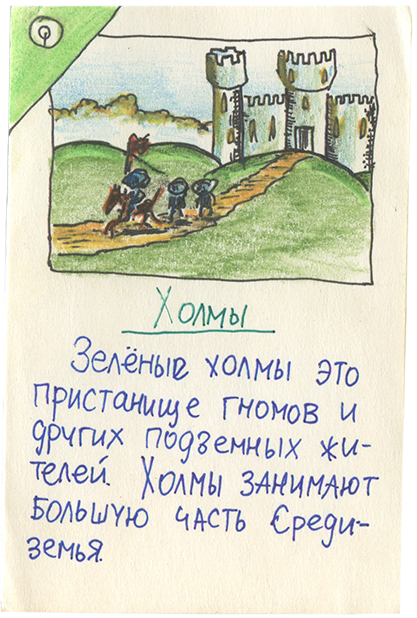 Холмы
Зелёные холмы это
пристанище гномов и
других подземных жи-
телей. Холмы занимают
большую часть Среди-
земья.